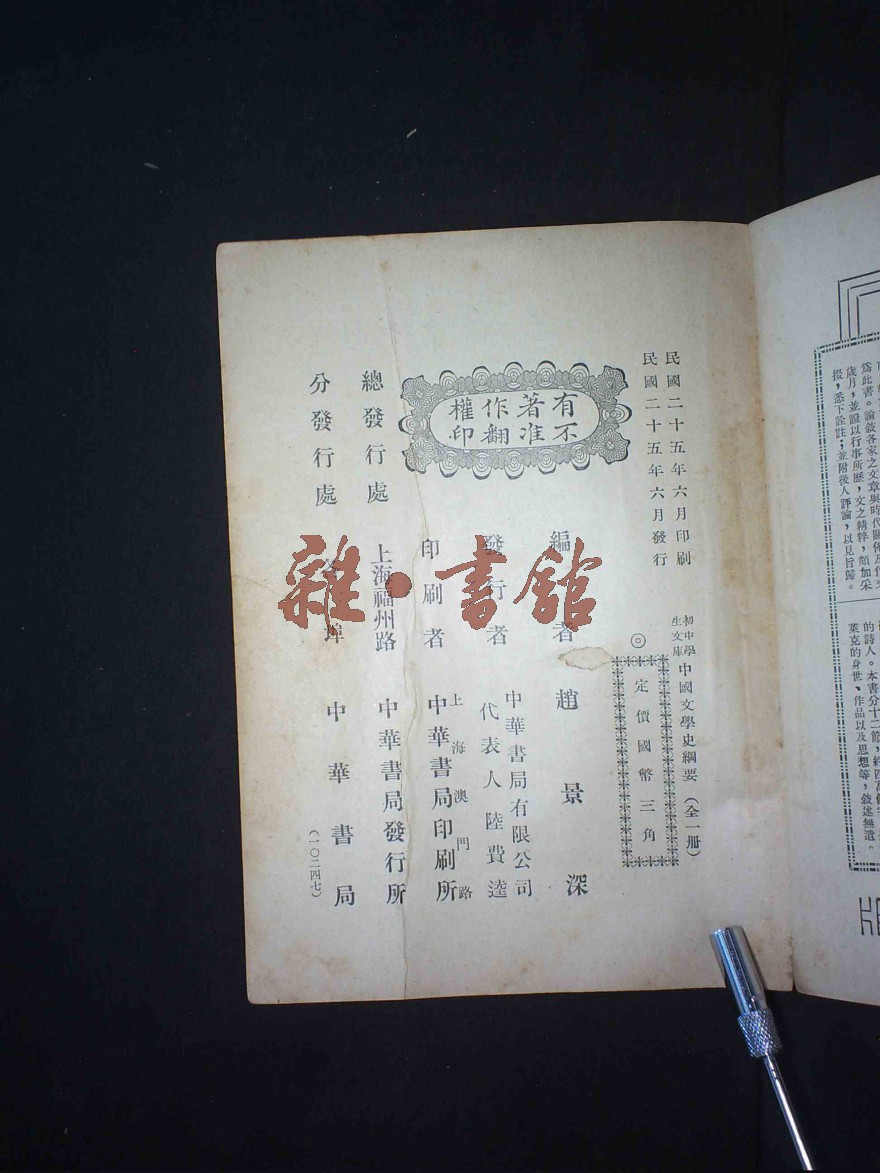 民國二十五年六月印刷
民國二十五年六月發行
初中學
生文庫
中國文學史綱要（全一册）
◎
定價國幣三角
有著作權
不准翻印
編者 趙景深
發行者 中華書局有限公司
代表人 陸費逵
印刷者 上海澳門路
中華書局印刷所
總發行處 上海福州路 中華書局發行所
分發行處 各埠 中華書局
（一〇二四七）
雜·書館
爲此書。論敘各家之文章與時代關係及作
歲月，並證以行事所歷，文之精粹，頗加采
掇，悉下詮註；並附後人評論，以見旨歸。
的詩人。本書分十二節，
萊克的身世、作品以及思想等，敘述無遺。